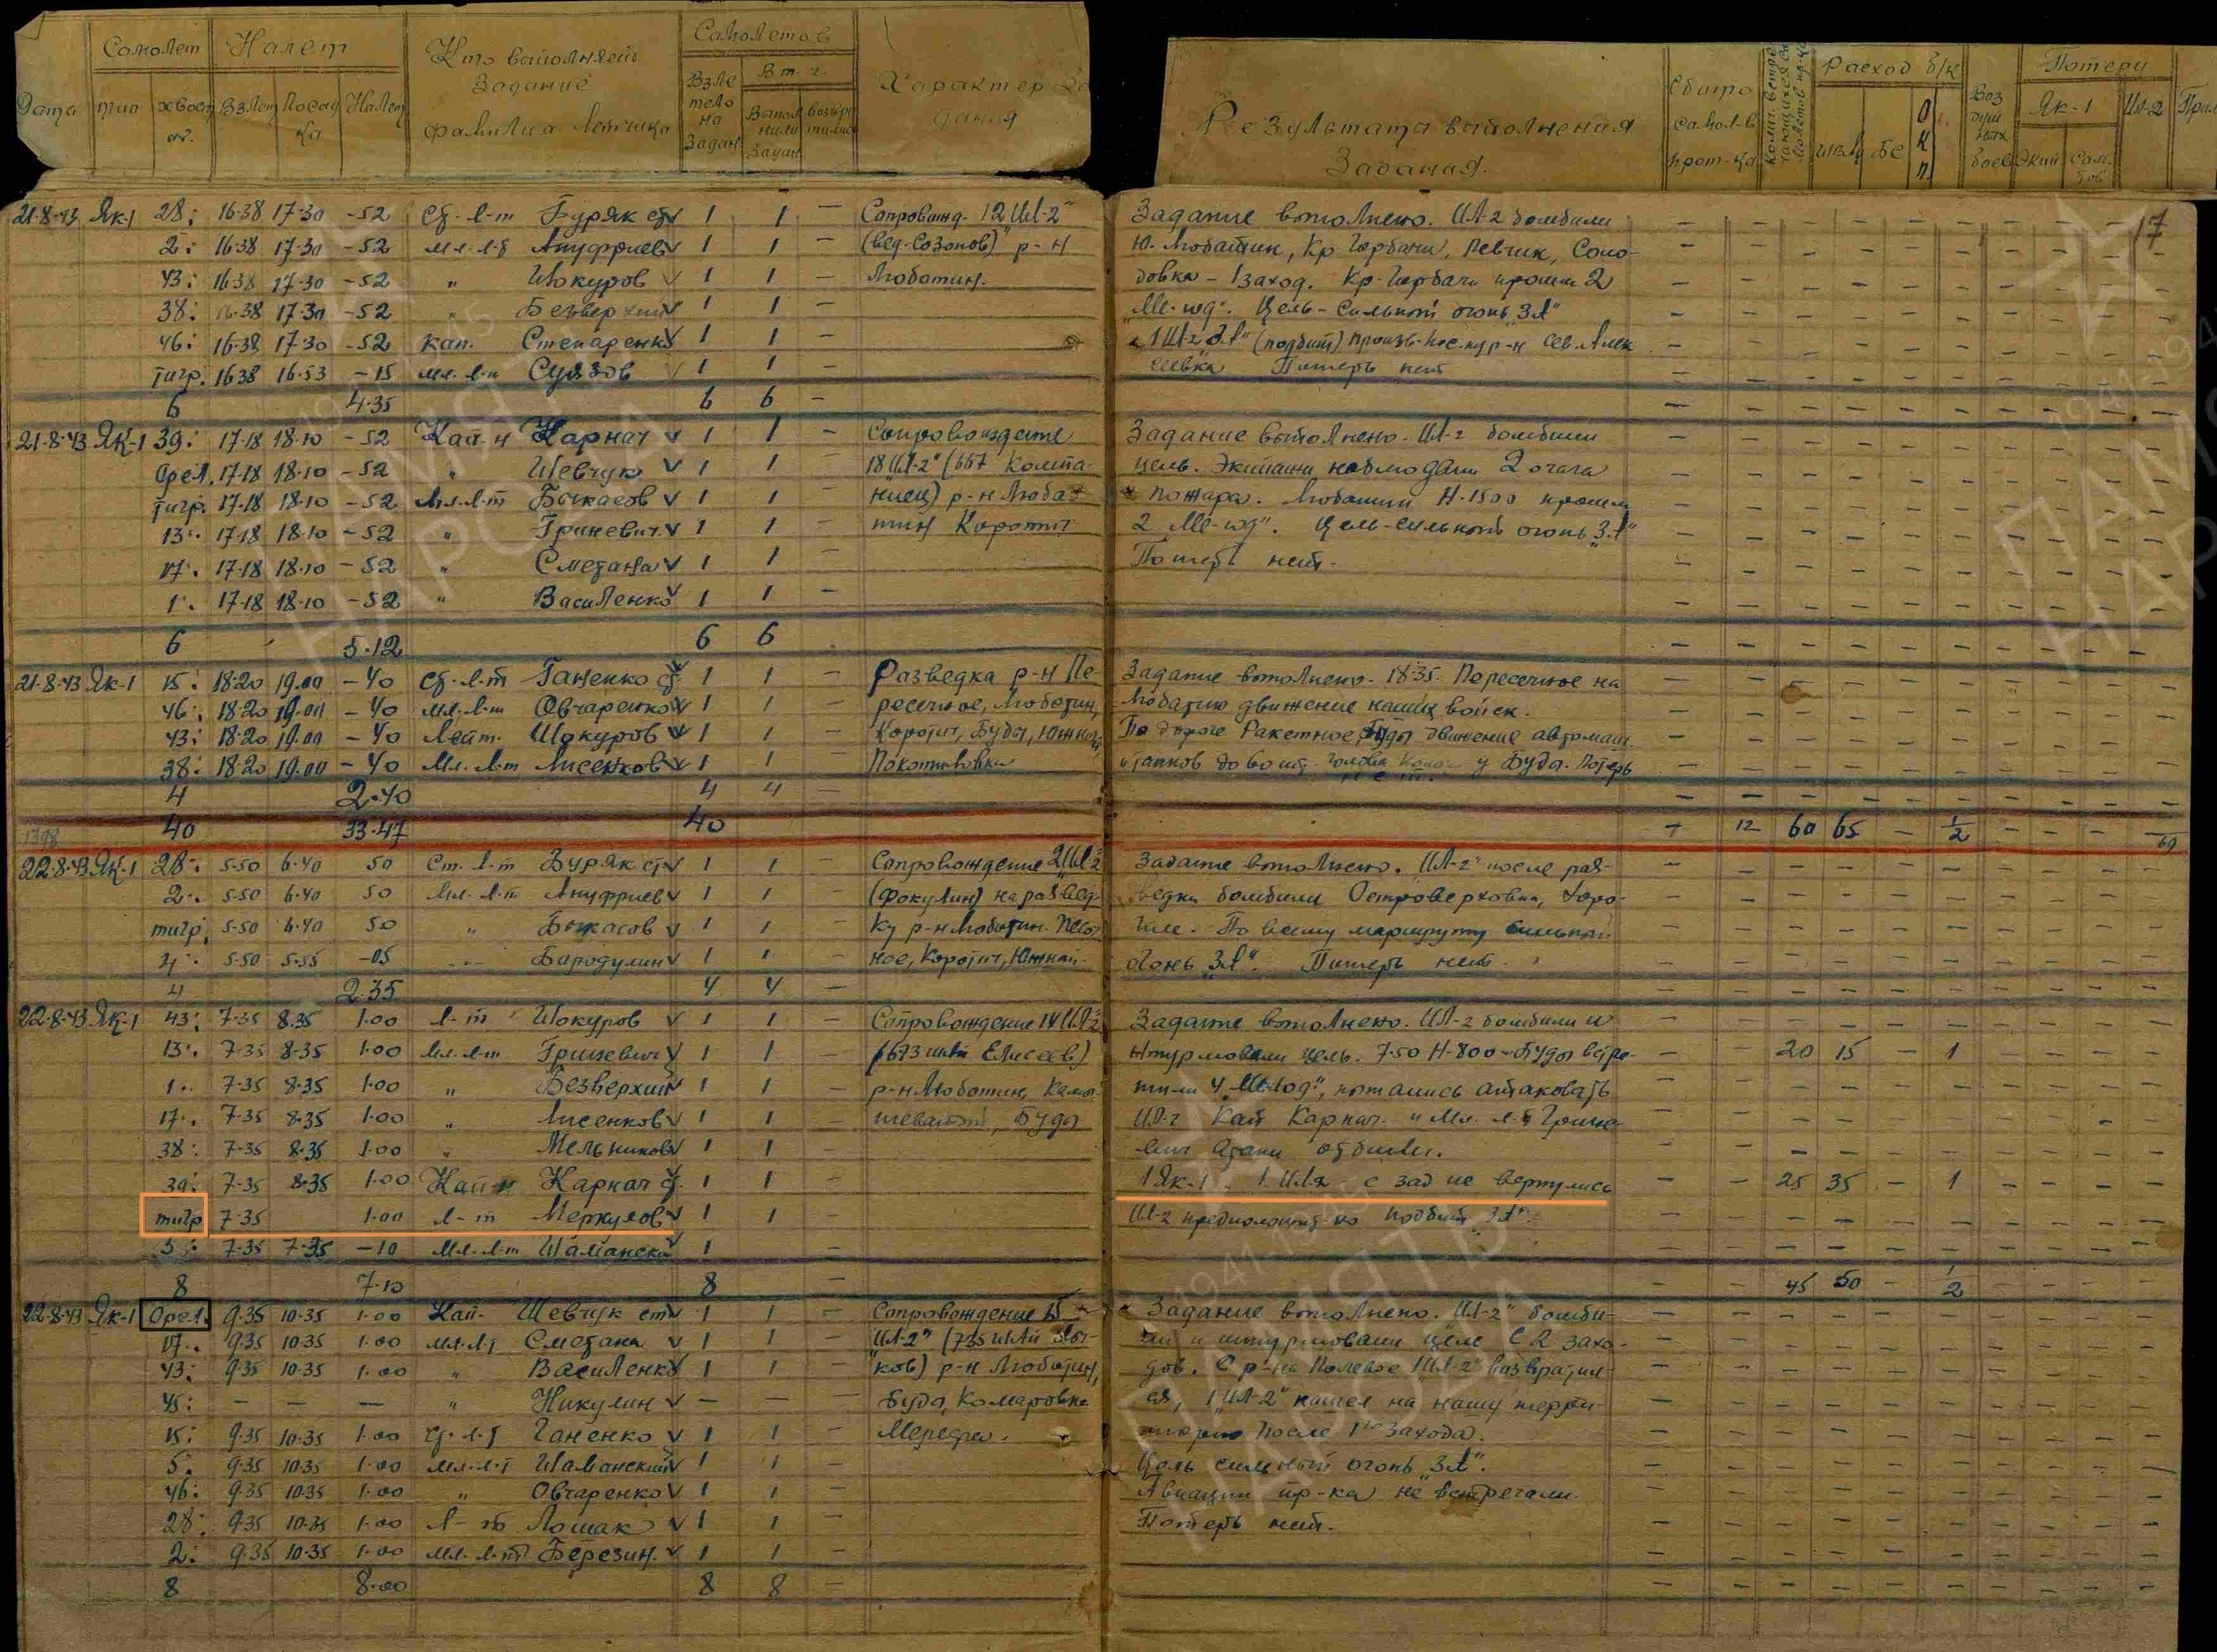 Дата
Самолет
Налет
Кто выполняет
Задание
фамилия летчика
Самолетов
Характер За
дания
Результаты выполнения
Задания.
Сбито
самол-в
прот-ка
Расход б/к
Воз
душ
ных
боев
Потери
Як-1
Ил-2
Прим
тип
хвост
№.
Взлет
Посад
ка
Налет
Взле
тело
на
Задан.
В т. ч.
Выпол
нили
Задан.
Экип
Сам.
17
21-8-43 Як-1 28: 16-38 17-30 -52 Ст. л-т Буряк ст 1 1 - Сопровожд. 12 Ил-2" Задание выполнено. ИЛ-2 бомбили
2: 16-38 17-30 -52 мл. л-т Ануфриев 1 1 - (вед. Созонов) р-н Ю. Люботин, Кр. Горбачи, Певчик, Соло-
43: 16-38 17-30 -52 " Шокуров 1 1 - Люботин. довка - 1 заход. Кр. Горбачи прошли 2
38: 16-38 17-30 -52 " Безверхий 1 1 - "Ме-109". Цель - сильный огонь "ЗА"
46: 16-38 17-30 -52 кап. Степаренко 1 1 - (подбит)
тигр. 16 38 16-53 -15 мл. л-т Суязов 1 1 - Потерь нет
6 4-35 6 6 -
21-8-43 Як-1 39: 17-18 18-10 -52 Кап-н Карнач 1 1 - Сопровождение Задание выполнено. ИЛ-2 бомбили
Орел. 17-18 18-10 -52 " Шевчук 1 1 - 18 Ил-2" (667 Компа- цель. Экипажи наблюдали 2 очага
тигр. 17-18 18-10 -52 мл. л-т Быкасов 1 1 - ниец) р-н Любо- пожара. Люботин Н-1500 прошли
13: 17-18 18-10 -52 " Гриневич 1 1 - тин Коротич 2 Ме-109". Цель-сильный огонь "ЗА"
17. 17-18 18-10 -52 " Сметана 1 1 - Потерь нет.
1. 17-18 18-10 -52 " Василенко 1 1 -
6 5-12 6 6
21-8-43 Як-1 15: 18-20 19.00 -40 ст. л-т Ганенко ст 1 1 - Разведка р-н Пе- Задание выполнено. 18-35. Пересечное на
46: 18-20 19.00 -40 мл. л-т Овчаренко 1 1 - ресечное, Люботин, Люботино движение наших войск.
43: 18-20 19.00 -40 Лейт. Шокуров 1 1 - Коротич, Буды, Южный По дороге Ракетное, Буды движение автомаш.
38: 18-20 19.00 -40 Мл. л-т Лисенков 1 1 - Покотиловка и танков до у Буды. Потерь
нет.
4 2-40 4 4 -
40 33-47 40 - 12 60 65 - 1/2
22-8-43 Як-1 28: 5-50 6-40 50 Ст. л-т Буряк ст 1 1 Сопровождение 2 Ил-2 Задание выполнено. ИЛ-2" после раз-
2: 5-50 6-40 50 Мл. л-т Ануфриев 1 1 (Фокулин) на развед- ведки бомбили Островерховка,
тигр. 5-50 6-40 50 " Быкасов 1 1 ку р-н Люботин. По всему маршруту сильный
4: 5-50 5-55 -05 " Бародулин 1 1 ное, Коротич, Южный. огонь "ЗА". Потерь нет.
4 2-35 4 4 -
22-8-43 Як-1 43: 7-35 8-35 1-00 л-т Шокуров 1 1 Сопровождение 14 Ил-2 Задание выполнено. ИЛ-2 бомбили и
13: 7-35 8-35 1-00 Мл. л-т Гриневич 1 1 (673 шап Елисеев) штурмовали цель. 7-50 Н-800 - Буды встре- 20 15 - 1
1. 7-35 8-35 1-00 " Безверхий 1 1 р-н Люботин, тили 4 Ме-109", пытались атаковать
17. 7-35 8-35 1-00 " Лисенков 1 1 Буды ИЛ-2 Кап Карнач и Мл. л-т Грине-
38: 7-35 8-35 1-00 " Мельников 1 1 вич атаки отбили.
39: 7-35 8-35 1-00 Кап-н Карнач 1 1 1 Як-1 и 1 ИЛ-2 с зад не вернулись 25 35 - 1
тигр 7-35 1-00 л-т Меркулов 1 1 ИЛ-2 предположит-но подбит "ЗА".
5: 7-35 7-35 -10 Мл. л-т Шаманский 1
8 7-10 8 - 45 50 - 2
22-8-43 Як-1 Орел. 9-35 10-35 1-00 Кап- Шевчук ст 1 1 Сопровождение 15 Задание выполнено. ИЛ-2" бомби-
17. 9-35 10-35 1-00 мл. л-т Сметана 1 1 ИЛ-2" (735 шап ли и штурмовали цель с 2 захо-
43: 9-35 10-35 1-00 " Василенко 1 1 ков) р-н Люботин, дов. С р-на Полевое 1 ИЛ-2" возвратил-
45: - - - " Никулин - - Буды, Комаровка ся, 1 "ИЛ-2" пошел на нашу терри-
15: 9-35 10-35 1-00 ст. л-т Ганенко 1 1 Мерефа. торию после 1го захода.
5: 9-35 10-35 1-00 мл. л-т Шаманский 1 1 Цель сильный огонь "ЗА".
46: 9-35 10-35 1-00 " Овчаренко 1 1 Авиации пр-ка не встречали.
28: 9-35 10-35 1-00 л-т Лошак 1 1 Потерь нет.
2: 9-35 10-35 1-00 мл. л-т Березин. 1 1
8 8-00 8 8 -